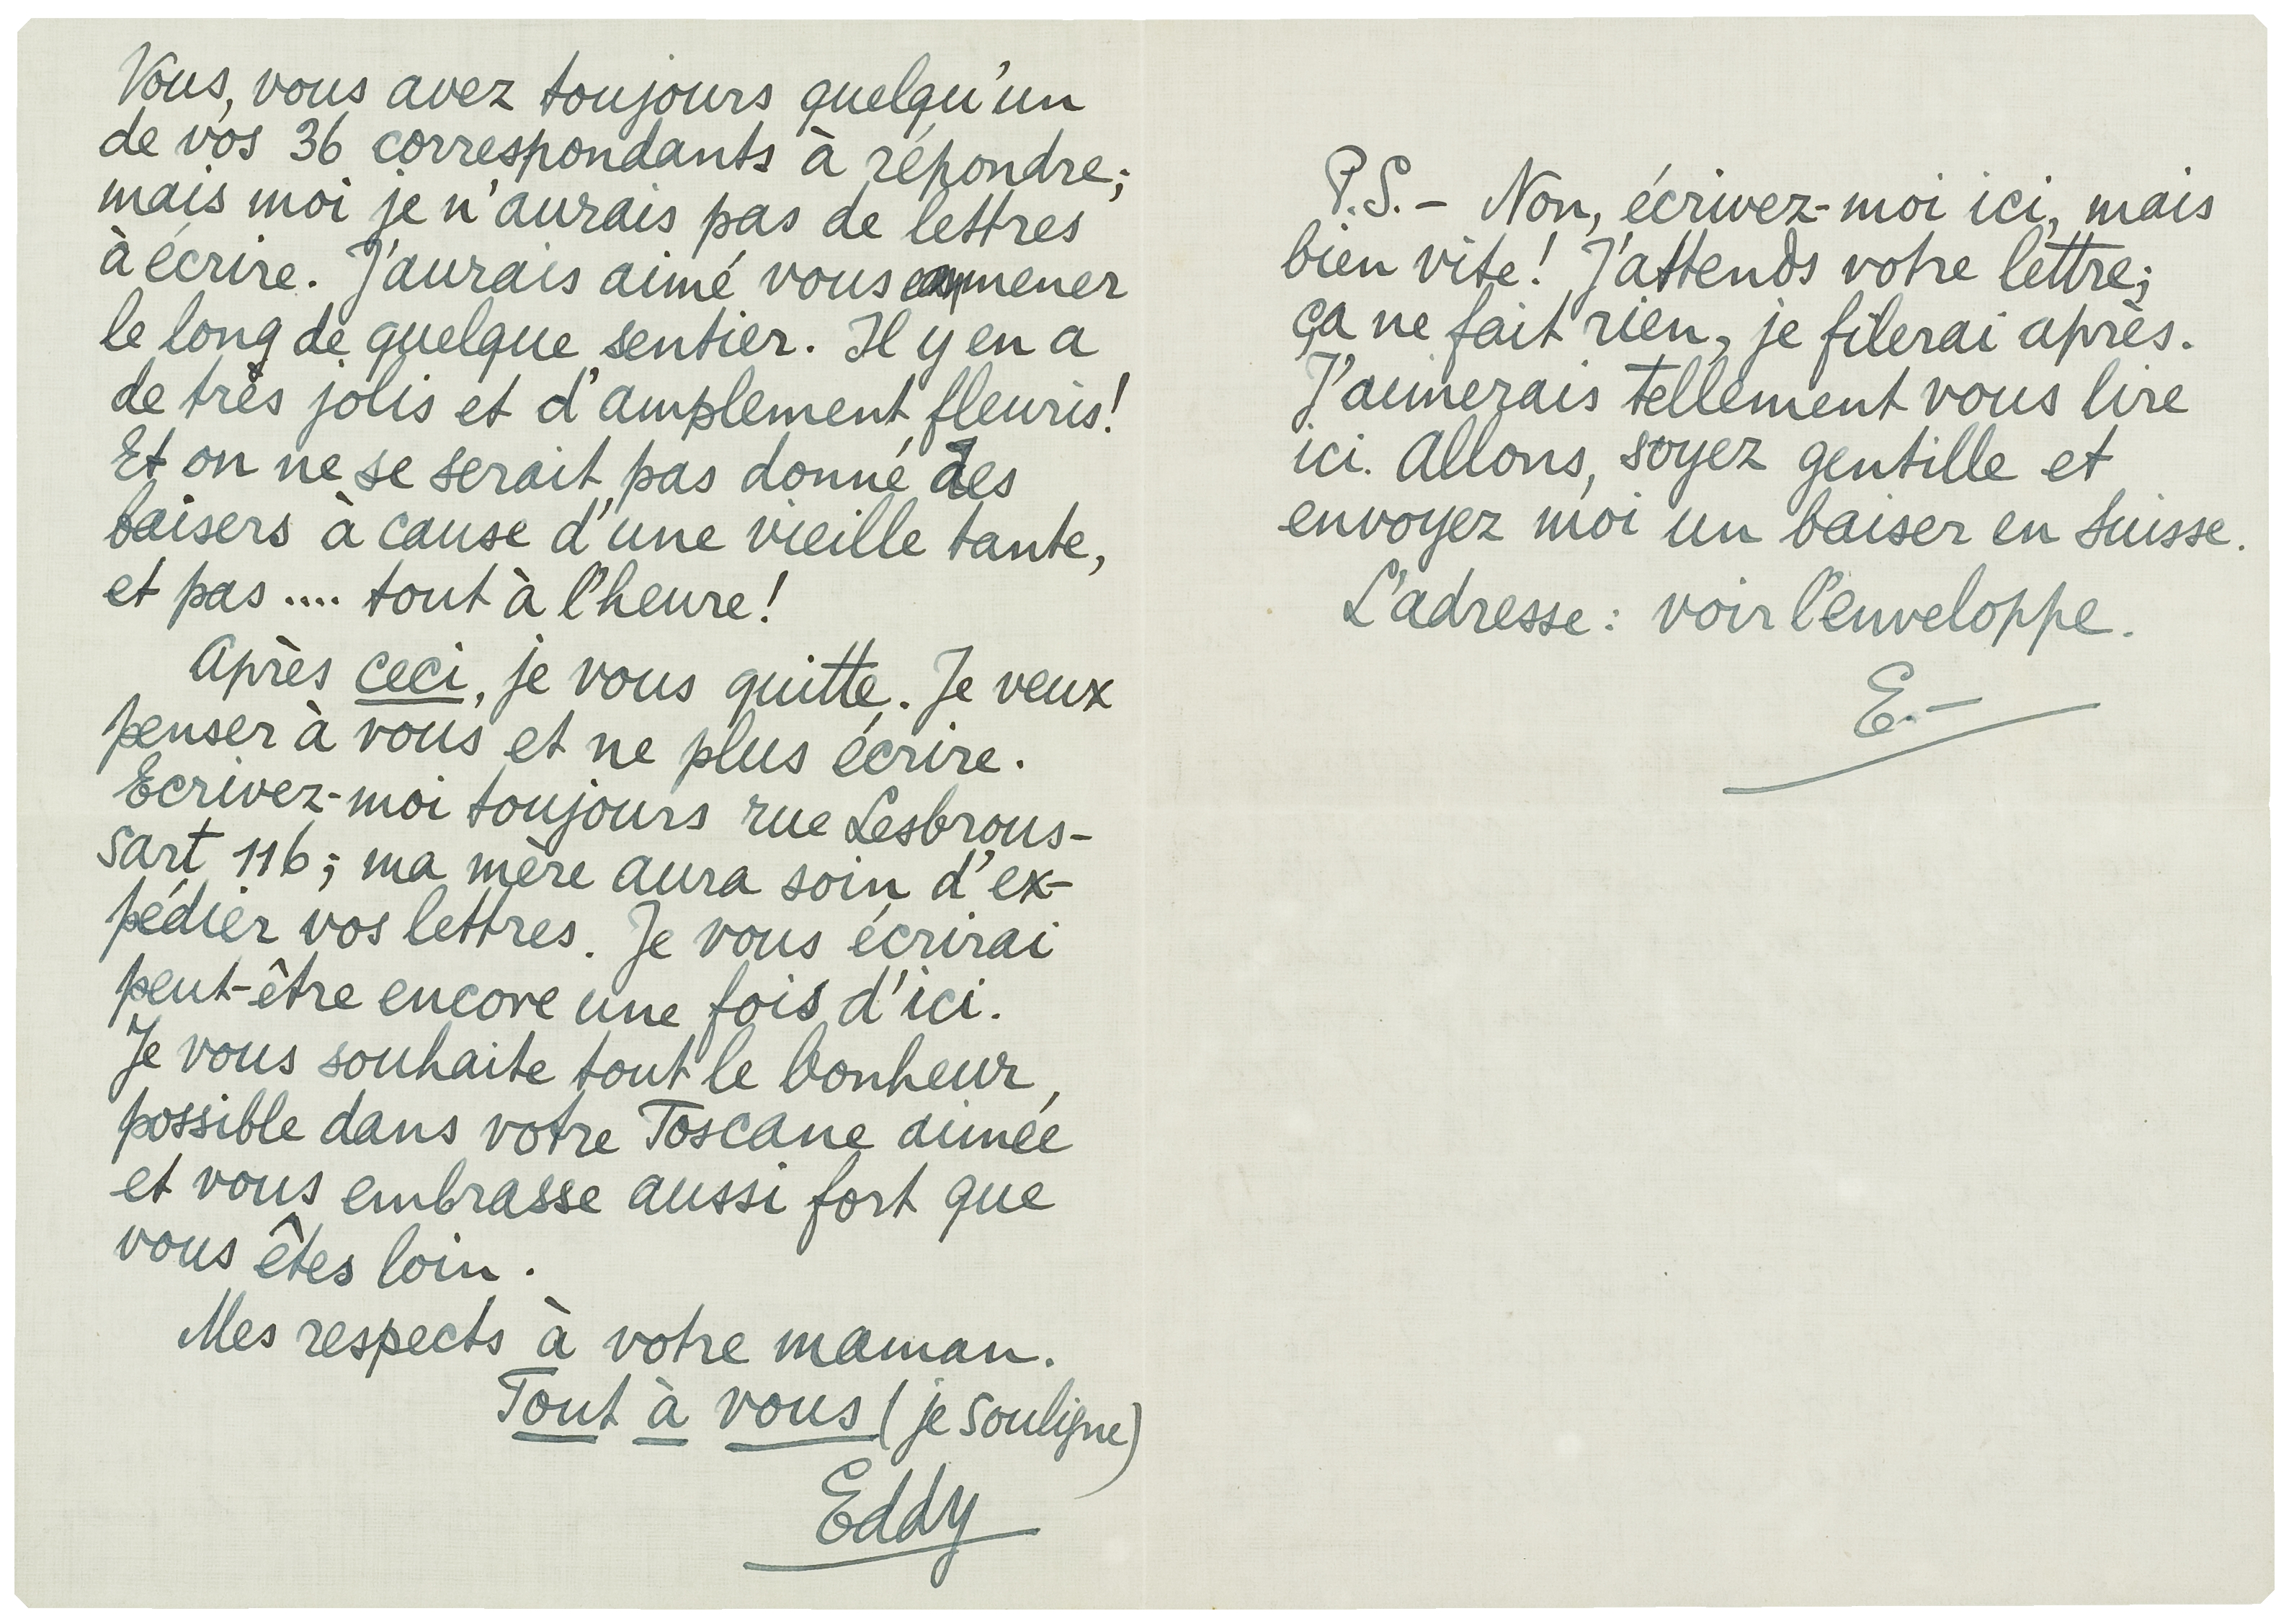 Vous, vous avez toujours quelqu'un
de vos 36 correspondants à répondre;
mais moi je n'aurais pas de lettres
à écrire. J'aurais aimé vous emmener
le long de quelque sentier. Il y en a
de très jolis et d'amplement fleuris!
Et on ne se serait pas donné des
baisers à cause d'une vieille tante,
et pas .... tout à l'heure!
Après ceci, je vous quitte. Je veux
penser à vous et ne plus écrire.
Ecrivez-moi toujours rue Lesbrous-
sart 116; ma mère aura soin d'ex-
pédier vos lettres. Je vous écrirai
peut-être encore une fois d'ici.
Je vous souhaite tout le bonheur
possible dans votre Toscane aimée
et vous embrasse aussi fort que
vous êtes loin.
Mes respects à votre maman.
Tout à vous (je souligne)
Eddy
P.S. - Non, écrivez-moi ici, mais
bien vite! J'attends votre lettre;
ça ne fait rien, je filerai après.
J'aimerais tellement vous lire
ici. Allons, soyez gentille et
envoyez moi un baiser en Suisse.
L'adresse: voir l'enveloppe.
E.-